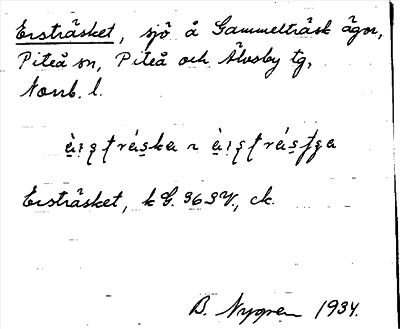 Ersträsket, sjö å Gammelträsk ägor,
Piteå sn, Piteå och Älvsby tg,
Norrb. l.
Ersträsket, k G. 36 SV., ck.
B. Nygren 1934.